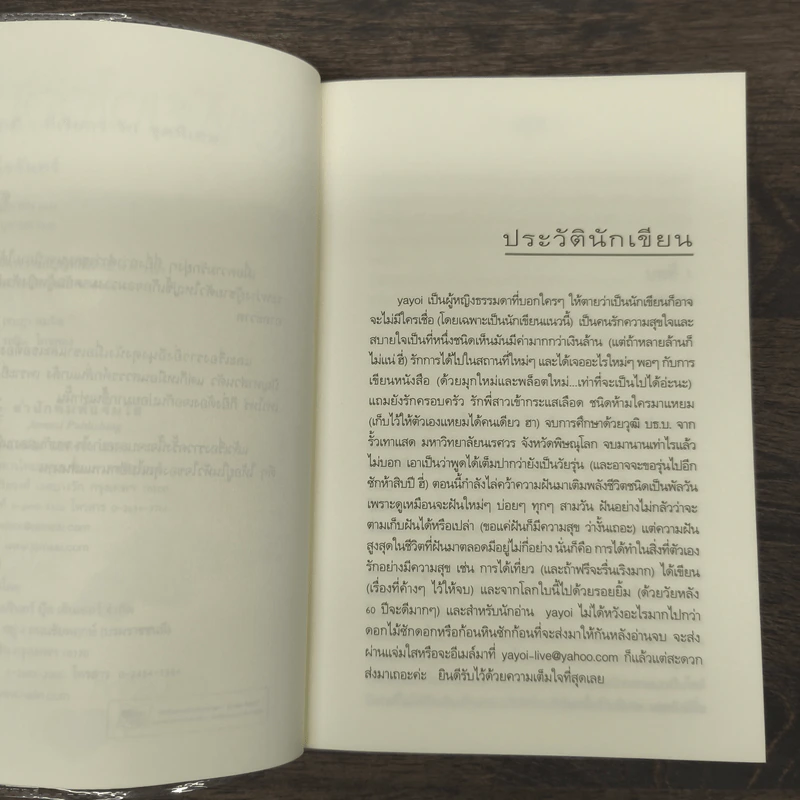 ประวัตินักเขียน
yayoi เป็นผู้หญิงธรรมดาที่บอกใครๆ ให้ตายว่าเป็นนักเขียนก็อาจ
จะไม่มีใครเชื่อ (โดยเฉพาะเป็นนักเขียนแนวนี้) เป็นคนรักความสุขใจและ
สบายใจเป็นที่หนึ่งชนิดเห็นมันมีค่ามากกว่าเงินล้าน (แต่ถ้าหลายล้านก็
ไม่แน่ ฮี่) รักการได้ไปในสถานที่ใหม่ๆ และได้เจออะไรใหม่ๆ พอๆ กับการ
เขียนหนังสือ (ด้วยมุกใหม่และพล็อตใหม่...เท่าที่จะเป็นไปได้อ่ะนะ)
แถมยังรักครอบครัว รักพี่สาวเข้ากระแสเลือด ชนิดห้ามใครมาแหยม
(เก็บไว้ให้ตัวเองแหยมได้คนเดียว ฮา) จบการศึกษาด้วยวุฒิ บธ.บ. จาก
รั้วเทาแสด มหาวิทยาลัยนเรศวร จังหวัดพิษณุโลก จบมานานเท่าไรแล้ว
ไม่บอก เอาเป็นว่าพูดได้เต็มปากว่ายังเป็นวัยรุ่น (และอาจจะขอรุ่นไปอีก
ซักห้าสิบปี ฮี่) ตอนนี้กำลังไล่คว้าความฝันมาเติมพลังชีวิตชนิดเป็นพัลวัน
เพราะดูเหมือนจะฝันใหม่ๆ บ่อยๆ ทุกๆ สามวัน ฝันอย่างไม่กลัวว่าจะ
ตามเก็บฝันได้หรือเปล่า (ขอแค่ฝันก็มีความสุข ว่างั้นเถอะ) แต่ความฝัน
สูงสุดในชีวิตที่ฝันมาตลอดมีอยู่ไม่กี่อย่าง นั่นก็คือ การได้ทำในสิ่งที่ตัวเอง
รักอย่างมีความสุข เช่น การได้เที่ยว (และถ้าฟรีจะรื่นเริงมาก) ได้เขียน
(เรื่องที่ค้างๆ ไว้ให้จบ) และจากโลกใบนี้ไปด้วยรอยยิ้ม (ด้วยวัยหลัง
60 ปีจะดีมากๆ) และสำหรับนักอ่าน yayoi ไม่ได้หวังอะไรมากไปกว่า
ดอกไม้ซักดอกหรือก้อนหินซักก้อนที่จะส่งมาให้กันหลังอ่านจบ จะส่ง
ผ่านแจ่มใสหรือจะอีเมล์มาที่ yayoi-live@yahoo.com ก็แล้วแต่สะดวก
ส่งมาเถอะค่ะ ยินดีรับไว้ด้วยความเต็มใจที่สุดเลย